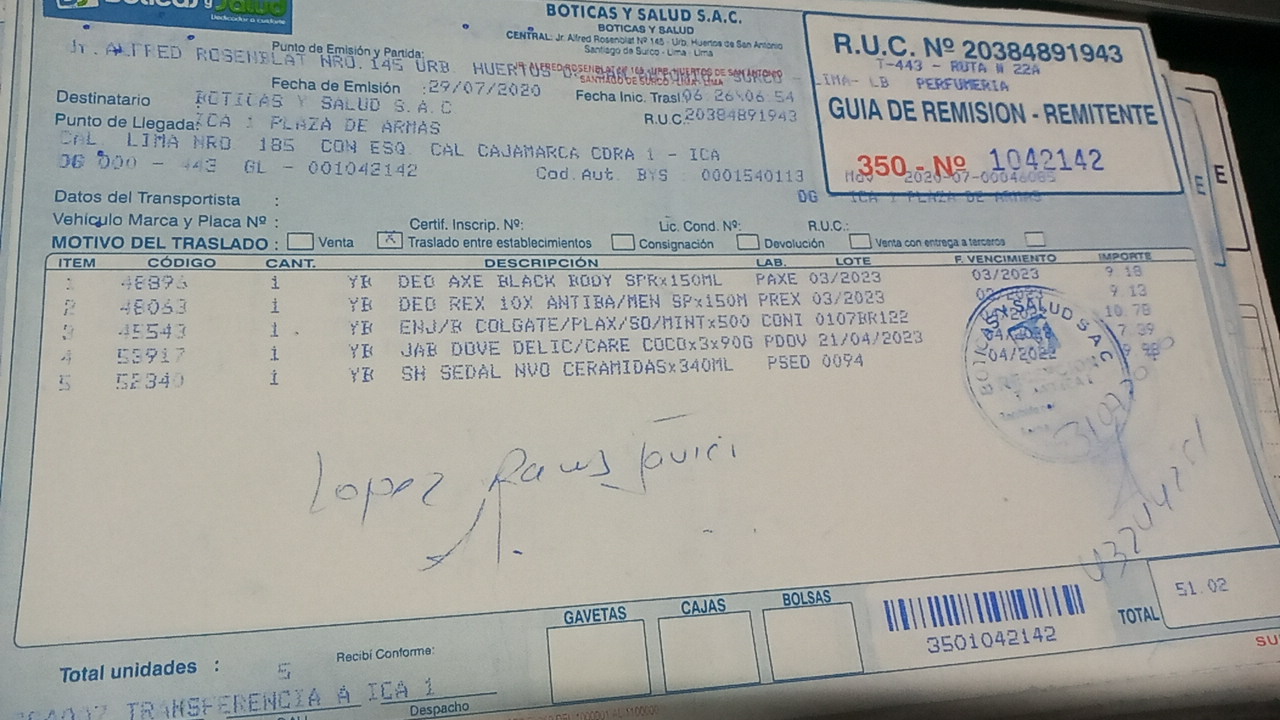 Boticas y Salud
BOTICAS Y SALUD S.A.C.
BOTICAS Y SALUD
CENTRAL: Jr. Alfred Rosenblat Nº 145 - Urb. Huertos de San Antonio
Santiago de Surco - Lima - Lima
Punto de Emisión y Partida:
Jr. ALFRED ROSENBLAT NRO.145 URB. HUERTOS
LIMA- LB
Fecha de Emisión :29/07/2020
Fecha Inic. Trasl 06 26:06:54
Destinatario BOTICAS Y SALUD S.A.C
R.U.C.: 20384891943
Punto de Llegada: ICA 1 PLAZA DE ARMAS
CAL LIMA NRO 185 CON ESQ. CAL CAJAMARCA CDRA 1 - ICA
DG 000 - 443 GL - 001042142 Cod.Aut. BYS : 0001540113
R.U.C. Nº 20384891943
T-443 - RUTA N 22A
PERFUMERIA
GUIA DE REMISION - REMITENTE
350 - Nº 1042142
DG ICA 1 PLAZA DE ARMAS
Datos del Transportista :
Vehículo Marca y Placa Nº : Certif. Inscrip. Nº: Lic. Cond. Nº: R.U.C.:
MOTIVO DEL TRASLADO : Venta X Traslado entre establecimientos Consignación Devolución Venta con entrega a terceros
ITEM CÓDIGO CANT. DESCRIPCIÓN LAB. LOTE F. VENCIMIENTO IMPORTE
1 48896 1 YB DEO AXE BLACK BODY SPRx150ML PAXE 03/2023 03/2023 9.18
2 48063 1 YB DEO REX 10X ANTIBA/MEN SPx150M PREX 03/2023 9.13
3 45543 1 YB ENJ/B COLGATE/PLAX/SO/MINTx500 CONI 0107BR122 10.78
4 53917 1 YB JAB DOVE DELIC/CARE COCOx3x90G PDOV 21/04/2023 7.39
5 52340 1 YB SH SEDAL NVO CERAMIDASx340ML PSED 0094
BOTICAS Y SALUD S A C
Lopez
GAVETAS CAJAS BOLSAS
3501042142
TOTAL 51.02
Total unidades : 5
Recibí Conforme:
TRANSFERENCIA A ICA 1
Despacho